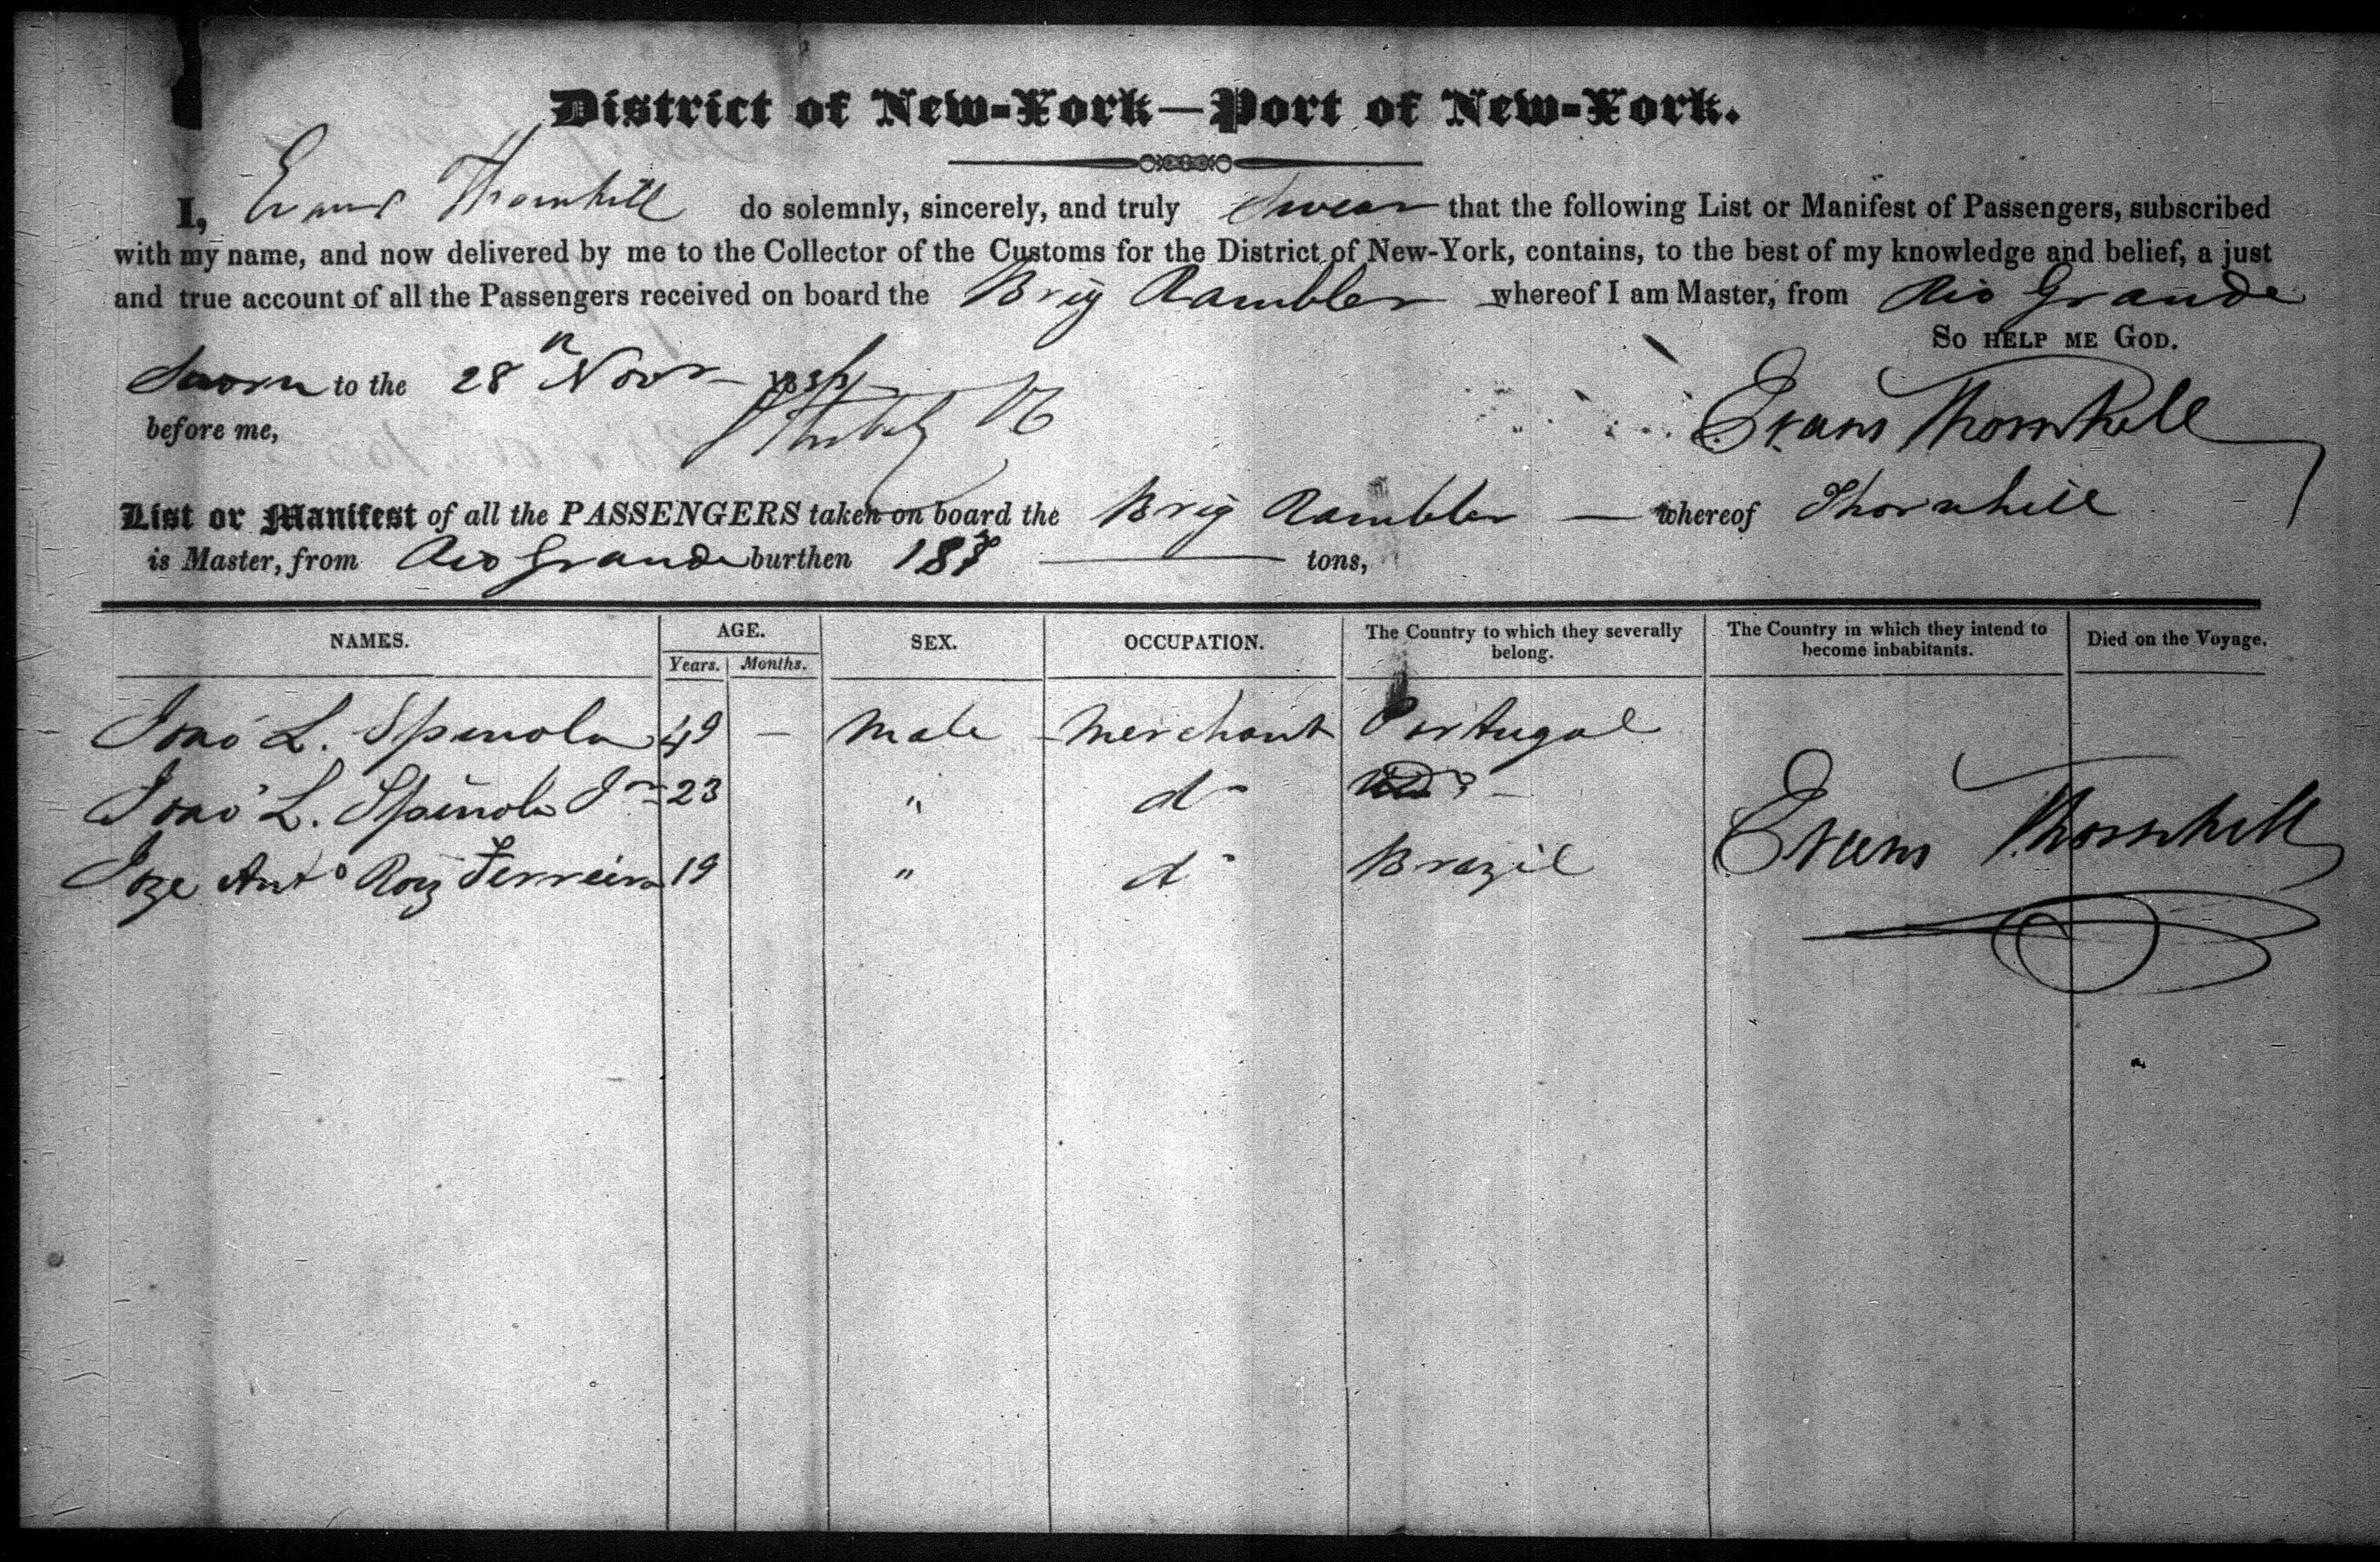 District of New-York—Port of New-York.
I, Evans Thornhill do solemnly, sincerely, and truly Swear that the following List or Manifest of Passengers, subscribed
with my name, and now delivered by me to the Collector of the Customs for the District of New-York, contains, to the best of my knowledge and belief, a just
and true account of all the Passengers received on board the Brig Rambler whereof I am Master, from Rio Grande
So HELP ME GOD.
Sworn to the 28 Novr
before me,
Evans Thornhill
List or Manifest of all the PASSENGERS taken on board the Brig Rambler — whereof Thornhill
is Master, from Rio Grande burthen tons,
NAMES. AGE. Years. Months. SEX. OCCUPATION. The Country to which they severally belong. The Country in which they intend to become inhabitants. Died on the Voyage.
Joao L. Spinola 49 — Male Merchant Portugal
Joao L. Spinola Jr 23 " do
Joze Anto Roiz Ferreira 19 " do Brazil
Evans Thornhill